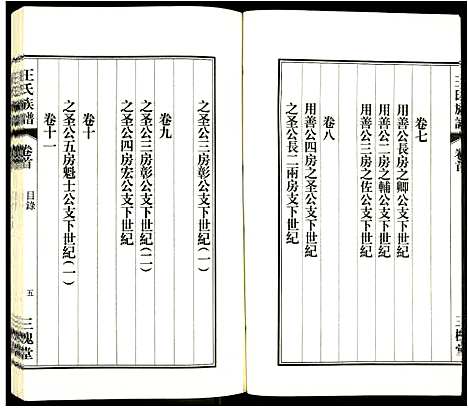 王氏族譜
卷首
三槐堂
卷七
用善公長房之卿公支下世紀
用善公二房之輔公支下世紀
用善公三房之佐公支下世紀
卷八
用善公四房之圣公支下世紀
之圣公長二兩房支下世紀
之圣公三房彰公支下世紀(一)
卷九
之圣公三房彰公支下世紀(二)
之圣公四房宏公支下世紀
卷十
之圣公五房魁士公支下世紀(一)
卷十一
王氏族譜
卷首
目錄
五
三槐堂